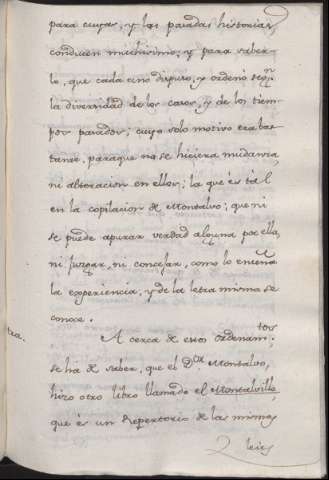 para cuyas, y las pasadas historias,
conducen muchisimo; y para saber-
lo, que cada uno dispuso, y ordenó seg.n
la diversidad de los casos, y de los tiem-
pos pasados; cuyo solo motivo era bas-
tante, paraque no se hiciera mudanza,
ni alteracion en ellos; la que és tal
en la copilacion de Montalvo; que ni
se puede apurar verdad alguna por ella,
ni Juzgar, ni concejar, como lo enseña
la experiencia, y de la letra misma se
conoce.
A cerca de estos ordenam.tos
se ha de saber, que el D.or Montalvo,
hizo otro libro llamado el Montalvillo,
que és un Repertorio de las mismas
leies
tra.